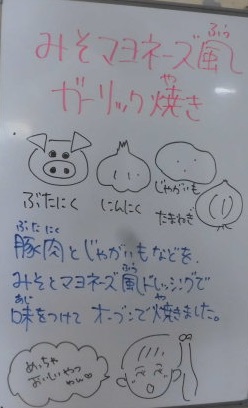 みそマヨネーズ風
ふう
ガーリック焼き
や
ぶたにく
にんにく
じゃがいも
たまねぎ
ぶた にく
豚肉とじゃがいもなどを、
ふう
みそとマヨネーズ風ドレッシングで
あじ
や
味をつけて オーブンで焼きました。
めっちゃ
おいしいやつ